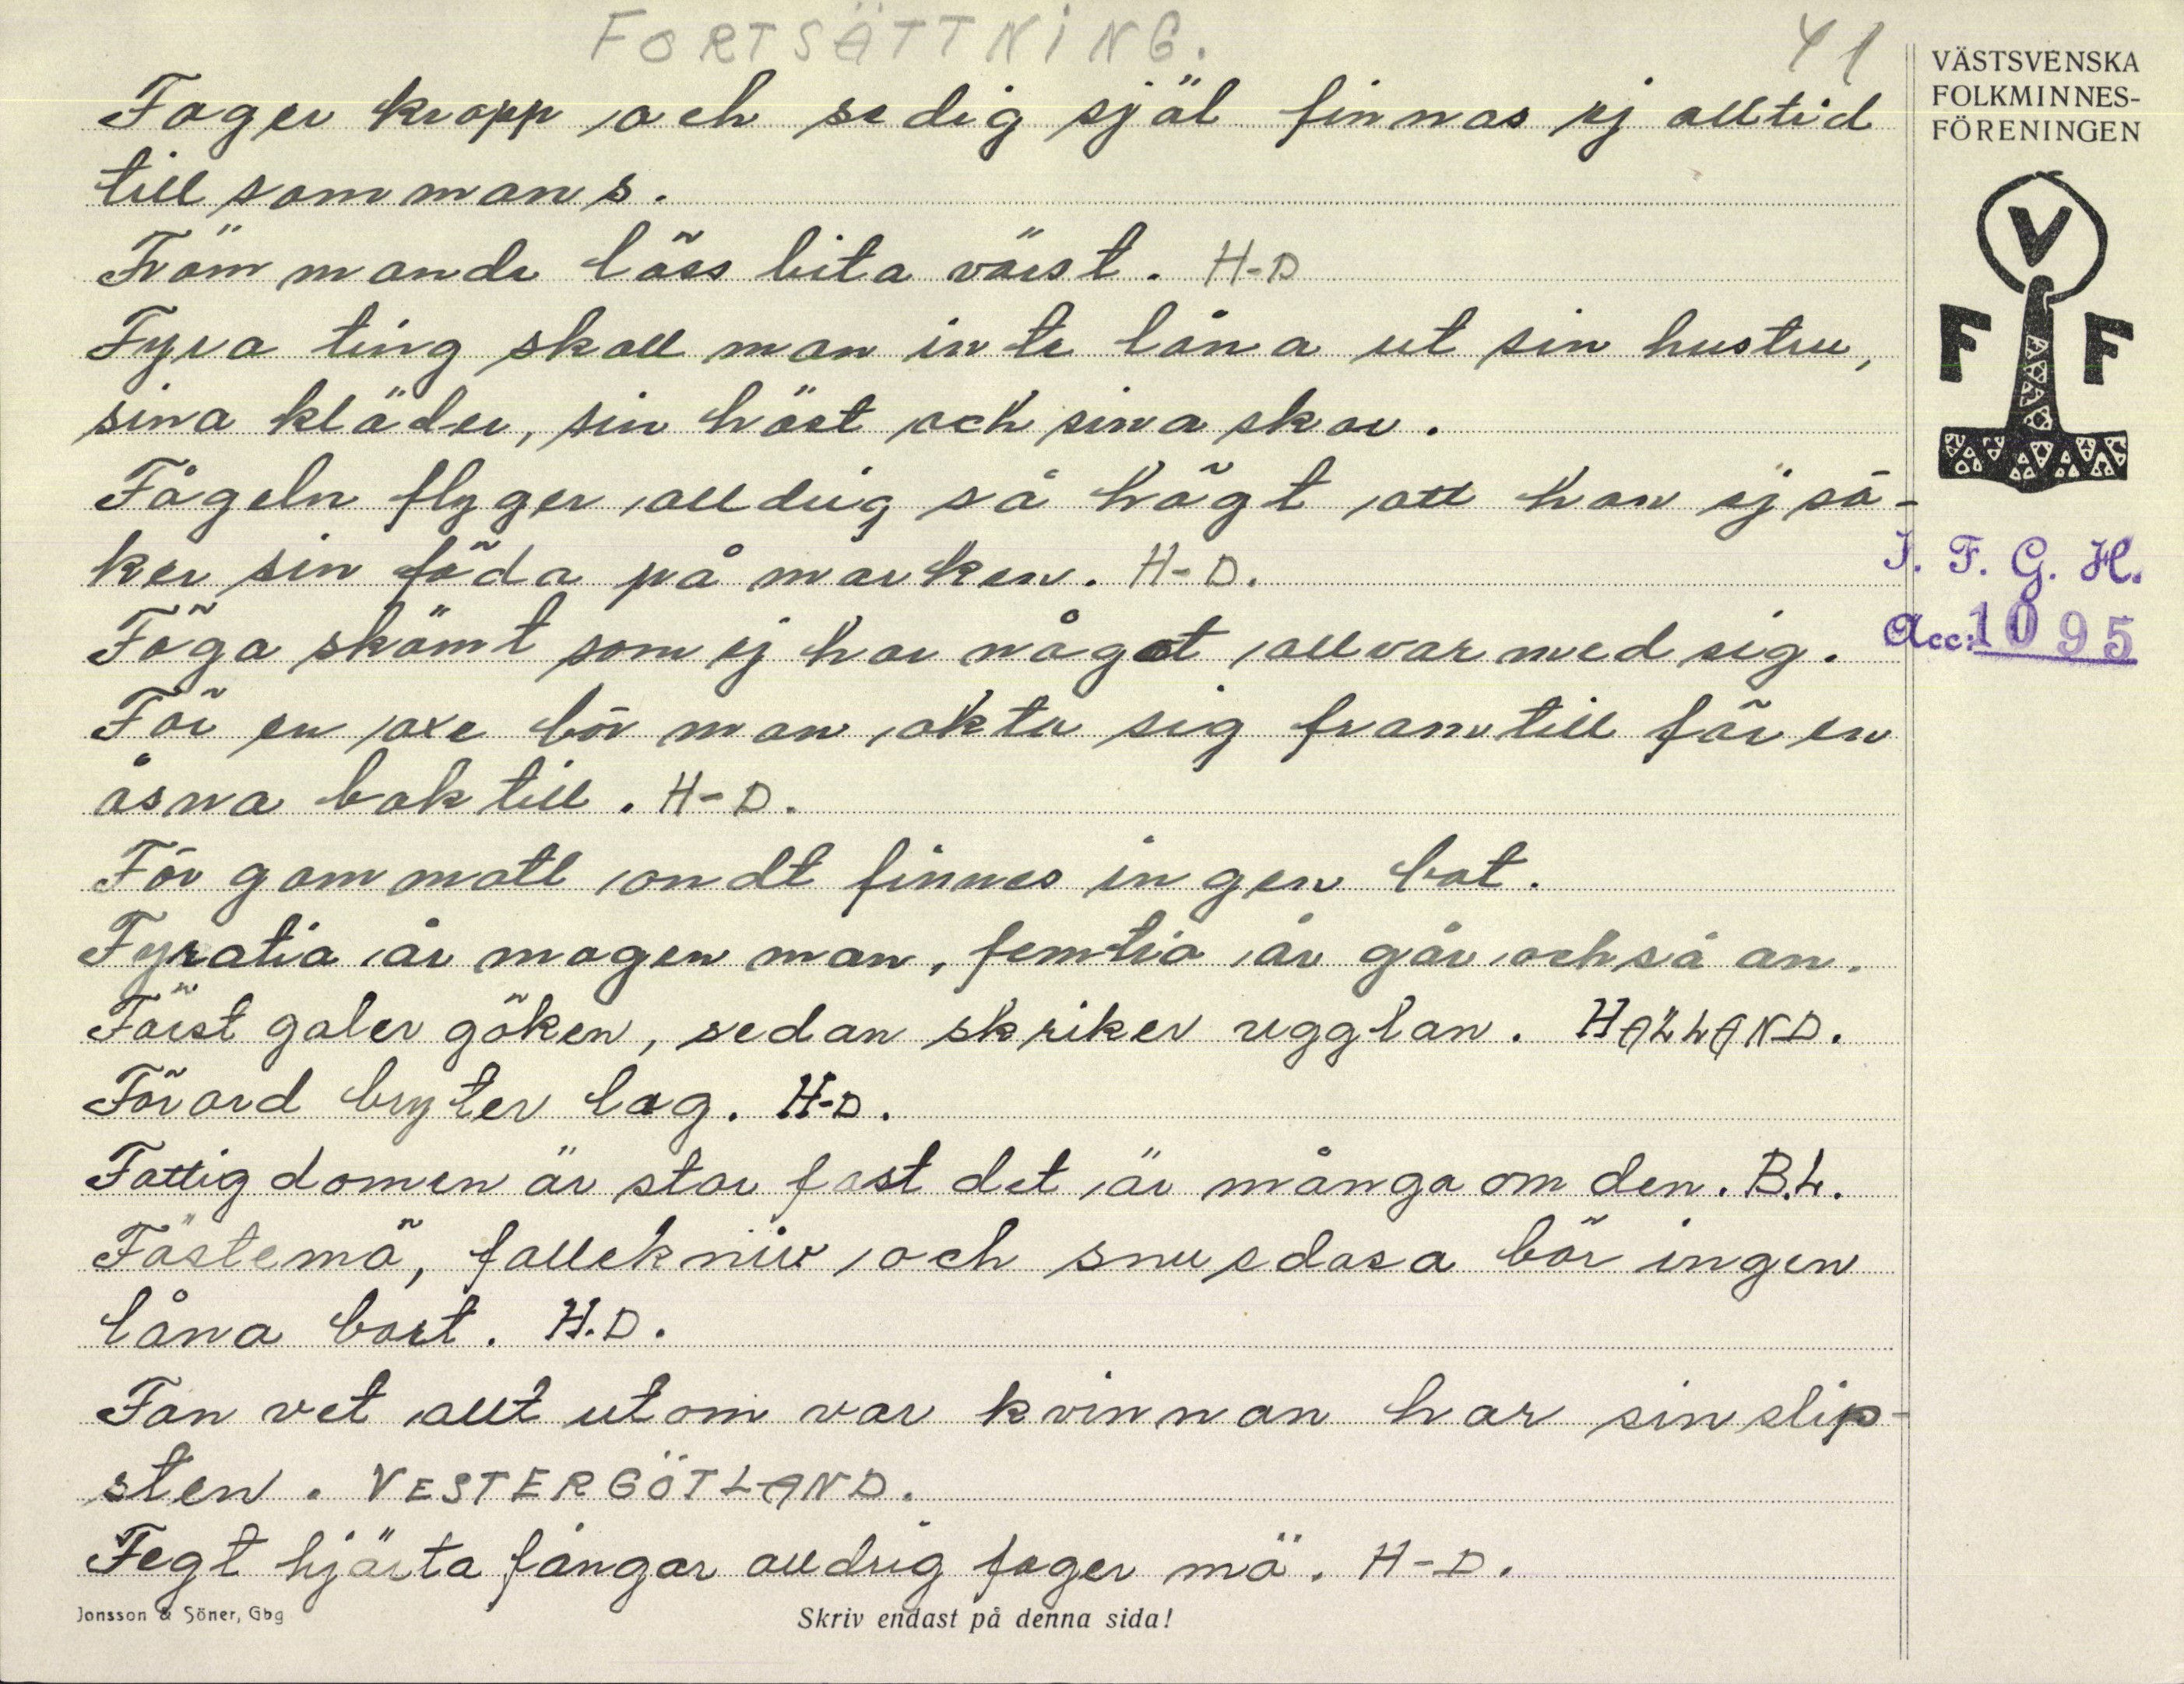 FORTSÄTTNING. 41
Fager kropp och sedig själ finnas ej alltid
tillsommans.
Främmande löss bita värst. H-D
Fyra ting skall man inte låna ut sin hustru,
sina kläder, sin häst och sina skor.
Fågeln flyger alldrig så högt att han ej sö-
ker sin föda på marken. H-D.
Föga skämt som ej har något allvar med sig.
För en oxe bör man akta sig framtill för en
åsna baktill. H-D.
För gammalt ondt finnes ingen bot.
Fyratio år mogen man, femtio år går också an.
Först galer göken, sedan skriker ugglan. HALLAND.
Förord bryter lag. H-D.
Fattigdomen är stor fast det är många om den. B.L.
Fästemö, fällekniv och snusdosa bör ingen
låna bort. H.D.
Fan vet allt utom var kvinnan har sin slip-
sten. VESTERGÖTLAND.
Fegt hjärta fångar alldrig fager mö. H-D.
Jonsson & Söner, Gbg
Skriv endast på denna sida!
VÄSTSVENSKA
FOLKMINNES-
FÖRENINGEN
V
F F
I. F. G. H.
Acc: 1095